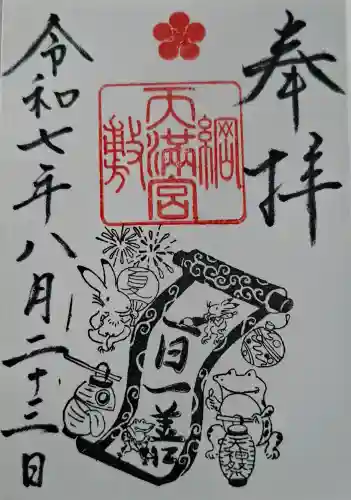 奉拝
綱敷天満宮
一日一善
天神
令和七年八月二十三日